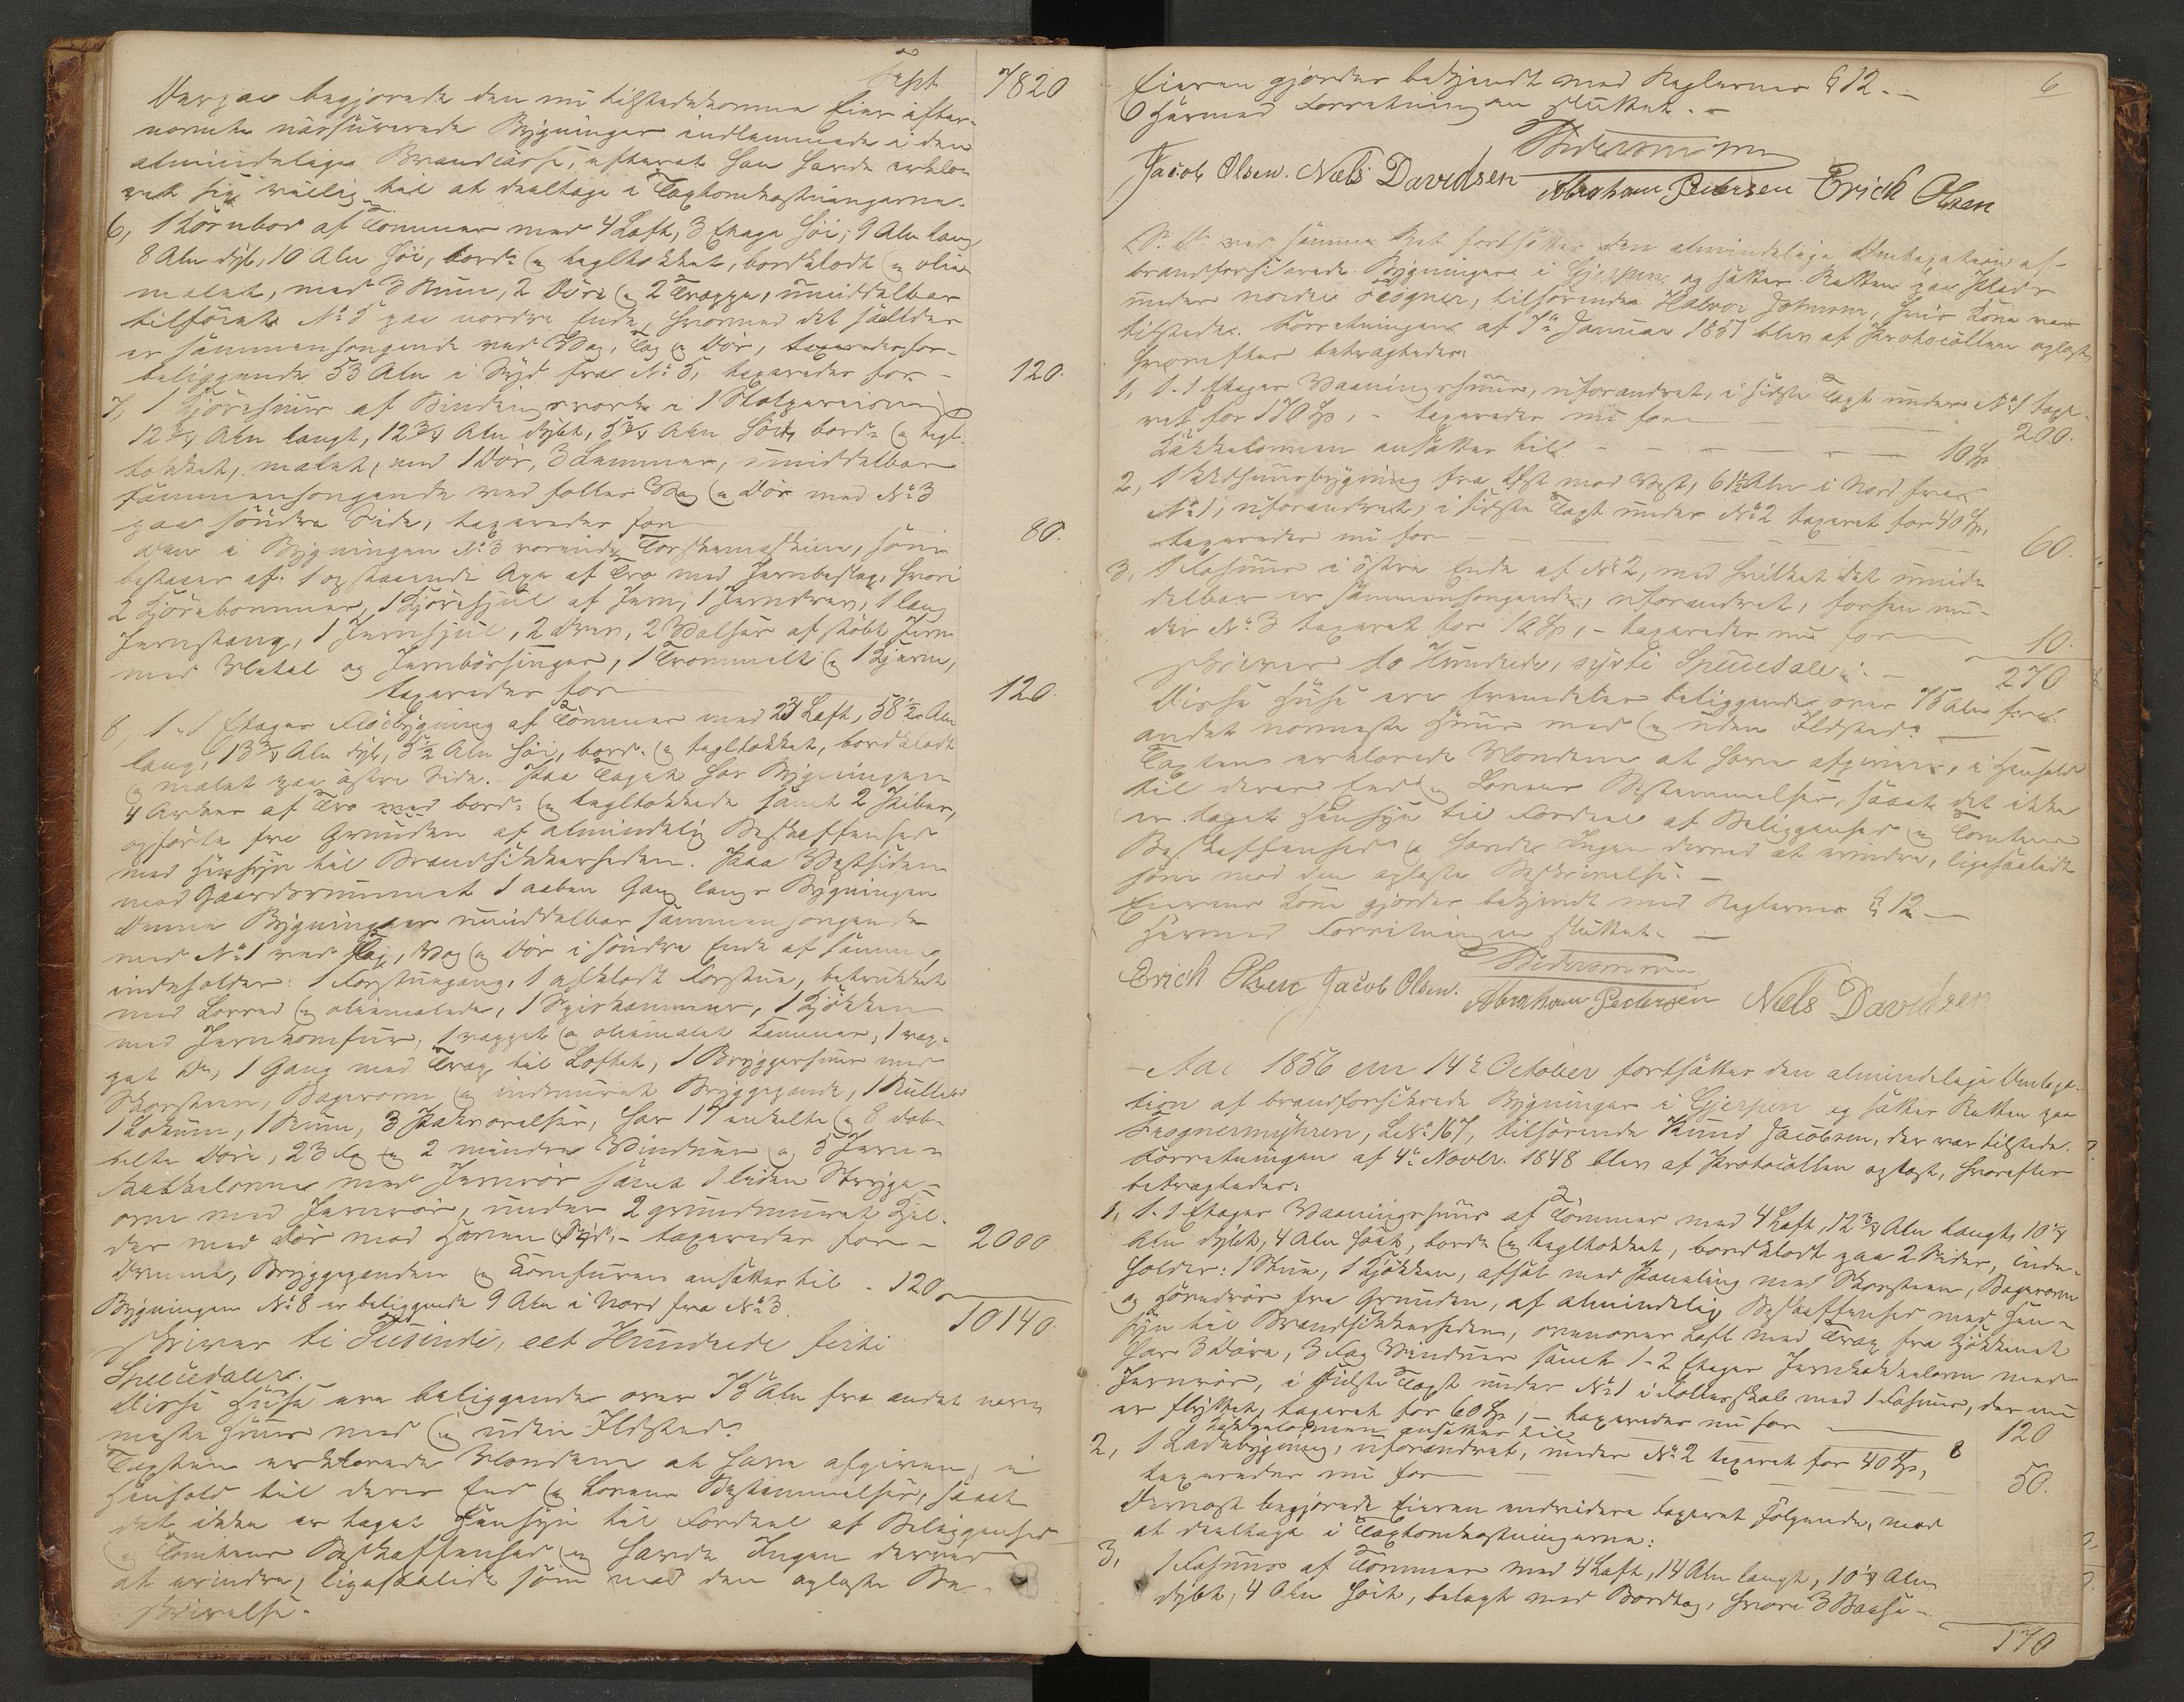 Transp. 7820
Derpaa begjærede den nu tilstedekomne Eier efter-
nævnte uassurerede Bygninger indlemmede i den
almindelige Brandcasse, efterat han havde erklæ-
ret sig villig til at deeltage i Taxtomkostningerne.
6, 1 Kornbod af Tømmer med 4 Laft, 3 Etage høi, 9 Alen lang
8 Alen dyb, 10 Alen høi, bord- og tegltækket, bordklædt og olie-
malet, med 3 Rum, 2 Døre og 2 Trapper, umiddelbar
tilføiet No 5 paa nordre Ende, hvormed det saaledes
er sammenhængende ved Væg, Tag og Dør,
beliggende 53 Alen i Syd fra No 5, taxeredes for - 120.
7, 1 Kjørehuus af Bindingsværk i 1 Stolpereisning
12 3/4 Alen langt, 12 3/4 Alen dybt, 5 3/4 Alen høit, bord- og tegl-
tækket, malet, med 1 Dør, 3 Lemmer, umiddelbar
sammenhængende ved fælles Væg og Dør med No 3
paa søndre Side, taxeredes for 80.
Den i Bygningen No 3 værende Torskemaskine, som
bestaaer af: 1 opstaaende Axe af Træ med Jernbeslag, hvori
2 Kjørebommer, 1 Kjørehjul af Jern, 1 Jerndrev, 1 lang
Jernstang, 1 Jernhjul, 2 Drev, 2 Valser af støbt Jern
med Metal og Jernbøsninger, 1 Trommel og 1 Kjerne,
taxeredes for 120.
8, 1-1 Etages Fløibygning af Tømmer med 23 Laft, 38 1/2 Alen
lang, 13 3/4 Alen dyb, 5 1/2 Alen høi, bord- og tegltækket, bordklædt
og malet paa østre Side. Paa Taget har Bygningen
4 Arker af Træ med bord- og tegltækkede samt 2 Piber,
opførte fra Grunden af almindelig Beskaffenhed
med Hensyn til Brandsikkerheden. Paa Vestsiden
mod Gaardsrummet 1 aaben Gang langs Bygningen
Denne Bygning er umiddelbar sammenhængende
med No 1 ved Tag, Væg og Dør i søndre Ende af samme,
indeholder: 1 Forstuegang, 1 afklædt Forstue, betrukket
med Lærred og oliemalede, 1 Spisekammer, 1 Kjøkken
med Jernkomfur, 1 pappet og oliemalet Kammer, 1 pap-
pet Do, 1 Gang med Trap til Loftet, 1 Bryggerhuus med
Skorsteen, Bagerovn og indmuret Bryggepande, 1 Rullebod
1 Lokum, 1 Rum, 3 Pakværelser, har 17 enkelte og 8 dob-
belte Døre, 23 Fag og 2 mindre Vinduer og 5 Jern-
kakkelovne med Jernrør samt 1 liden Stryge-
ovn med Jernrør, under 2 grundmuret Kjæl-
der med Dør mod Haven Syd, - taxeredes for - 2000
Ovnene, Bryggepanden og Komfuren ansættes til - 120
Bygningen No 8 er beliggende 9 Alen i Nord fra No 3. 10140.
skriver ti Tusinde, eet Hundrede firti
Speciedaler.
Disse Huse ere beliggende over 75 Alen fra andet nær-
meste Huus med og uden Ildsted.
Taxten erklærede Mændene at have afgiven, i
Henhold til deres Eed og Lovens Bestemmelser, saaat
det ikke er taget Hensyn til Fordeel af Beliggenhed
og Tomtens Beskaffenhed og havde Ingen derved
at erindre, ligesaalidt som ved den oplæste Be-
skrivelse.
6
Eieren gjordes bekjendt med Reglernes § 12.-
Hermed Forretningen sluttet. -
Jacob Olsen. Niels Davidsen Abraham Pedersen Erich Olsen
S. D. ved samme Ret fortsættes den almindelige Omtaxation af
brandforsikrede Bygninger i Gjerpen og sattes Retten paa Plads
under nordre Fogner, tilhørende Halvor Johnsen, hvis Kone var
tilstede. Forretningen af 7de Januar 1851 blev af Protocollen oplæst,
hvorefter betragtedes:
1, 1-1 Etages Vaaningshuus, uforandret, i sidste Taxt under No 1 taxe-
ret for 170 Sp, - taxeredes nu for 200.
Kakkelovnen ansættes til - 10 Sp
2, 1 Udhuusbygning fra Øst mod Vest, 6 1/2 Alen i Nord fra
No 1, uforandret, i sidste Taxt under No 2 taxeret for 40 Sp,
taxeredes nu for 60.
3, 1 Fæhuus i østre Ende af No 2, med hvilket det umid-
delbar er sammenhængende, uforandret, forhen un-
der No 3 taxeret for 10 Sp, - taxeredes nu for 10.
skriver to Hundrede, sytti Speciedaler. - 270
Disse Huse ere fremdeles beliggende over 75 Alen fra
andet nærmeste Huus med og uden Ildsted.
Taxten erklærede Mændene at have afgiven, i Henhold
til deres Eed og Lovens Bestemmelser, saaat det ikke
er taget Hensyn til Fordeel af Beliggenhed og Tomtens
Beskaffenhed og havde Ingen derved at erindre, ligesaalidt
som med den oplæste Beskrivelse. -
Eierens Kone gjordes bekjendt med Reglernes § 12 -
Hermed Forretningen sluttet. -
Erich Olsen Jacob Olsen. Abraham Pedersen Niels Davidsen
Aar 1856 den 14de October fortsattes den almindelige Omtaxa-
tion af brandforsikrede Bygninger i Gjerpen og sattes Retten paa
Frognermyhren, Lbn 167, tilhørende Knud Jacobsen, der var tilstede.
Forretningen af 4de Novbr. 1848 blev af Protocollen oplæst, hvorefter
betragtedes:
1, 1-1 Etages Vaaningshuus af Tømmer med 4 Laft, 12 3/4 Alen langt, 10 1/4
Alen dybt, 4 Alen høit, bord- og tegltækket, bordklædt paa 2 Sider, inde-
holder: 1 Stue, 1 Kjøkken, afsat med Paneling med Skorsteen, Bagerovn
og Hjørnerør fra Grunden, af almindelig Beskaffenhed med Hen-
syn til Brandsikkerheden, ovenover Loft med Trap fra Kjøkkenet
har 3 Døre, 3 Fag Vinduer samt 1-2 Etages Jernkakkelovn med
Jernrør, i sidste Taxt under No 1 i Fællesskab med 1 Fæhuus, der nu
er flyttet, taxeret for 60 Sp, - taxeredes nu for 120
Kakkelovnen ansættes til 8
2, 1 Ladebygning, uforandret, under No 2 taxeret for 40 Sp,
taxeredes nu for 50.
Dernæst begjærede Eieren endvidere taxeret Følgende, mod
at deeltage i Taxtomkostningerne:
3, 1 Fæhuus af Tømmer med 4 Laft, 14 Alen langt, 10 1/4 Alen
dybt, 4 Alen høit, belagt med Bordtag, hvori 3 Baase -
170